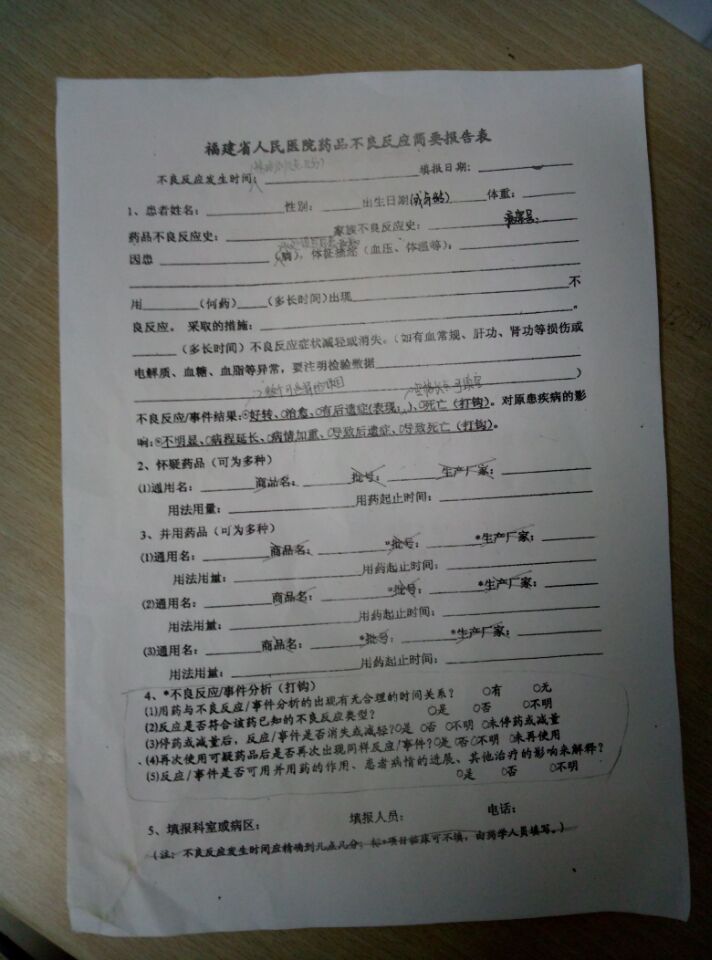 福建省人民医院药品不良反应简要报告表
不良反应发生时间：____ 填报日期：____
1、患者姓名：____性别：____出生日期(或年龄)____体重：____
药品不良反应史：____家族不良反应史：____病案号：
因患____(病)，体征描述（血压、体温等）：
____不
用____(何药)____(多长时间)出现____
良反应。 采取的措施：____。
____（多长时间）不良反应症状减轻或消失。（如有血常规、肝功、肾功等损伤或
电解质、血糖、血脂等异常，要注明检验数据____
____）
不良反应/事件结果：○好转、○治愈、○有后遗症(表现：)、○死亡（打钩）。对原患疾病的影
响：○不明显、○病程延长、○病情加重、○导致后遗症、○导致死亡（打钩）。
2、怀疑药品（可为多种）
(1)通用名：____商品名：____批号：____生产厂家：____
用法用量：____用药起止时间：____
3、并用药品（可为多种）
(1)通用名：____商品名：____*批号：____*生产厂家：____
用法用量：____用药起止时间：____
(2)通用名：____商品名：____*批号：____*生产厂家：____
用法用量：____用药起止时间：____
(3)通用名：____商品名：____*批号：____*生产厂家：____
用法用量：____用药起止时间：____
4、*不良反应/事件分析（打钩）
(1)用药与不良反应/事件分析的出现有无合理的时间关系？ ○有 ○无
(2)反应是否符合该药已知的不良反应类型？ ○是 ○否 ○不明
(3)停药或减量后，反应/事件是否消失或减轻？○是 ○否 ○不明 ○未停药或减量
(4)再次使用可疑药品后是否再次出现同样反应/事件？○是 ○否 ○不明 ○未再使用
(5)反应/事件是否可用并用药的作用、患者病情的进展、其他治疗的影响来解释？
○是 ○否 ○不明
5、填报科室或病区： 填报人员： 电话：
（注：不良反应发生时间应精确到几点几分；标*项目临床可不填，由药学人员填写。）